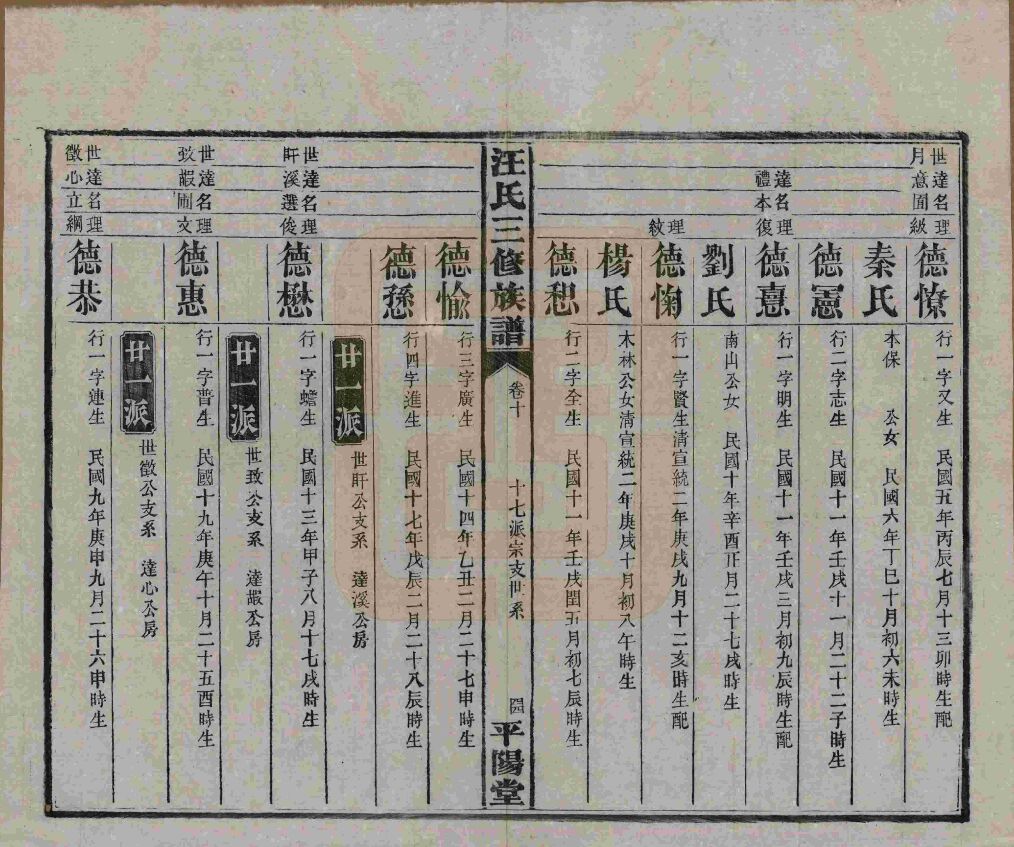 世達名理
月意圊級
德憭
行一字又生　民國五年丙辰七月十三卯時生
秦氏
本保　公女　民國六年丁巳十月初六未時生
德憲
行二字志生　民國十一年壬戌十一月二十二子時生
達名理
禮本復
德憙
行一字明生　民國十一年壬戌三月初九辰時生配
劉氏
南山公女　民國十年辛酉正月二十七戌時生
理
紋
德㥌
行一字賢生清宣統二年庚戌九月十二亥時生配
楊氏
木林公女清宣統二年庚戌十月初八午時生
德恕
行二字全生　民國十一年壬戌閏五月初七辰時生
汪氏三修族譜
卷十
十七派宗支世系
平陽堂
德愉
行三字廣生　民國十四年乙丑二月二十七申時生
德愻
行四字進生　民國十七年戊辰二月二十八辰時生
廿一派
世盰公支系　達溪公房
世達名理
盰溪選俊
德懋
行一字蟾生　民國十三年甲子八月十七戌時生
廿一派
世致公支系　達嘏公房
世達名理
致嘏圃文
德惠
行一字普生　民國十九年庚午十月二十五酉時生
廿一派
世徵公支系　達心公房
世達名理
徵心立綱
德恭
行一字連生　民國九年庚申九月二十六申時生